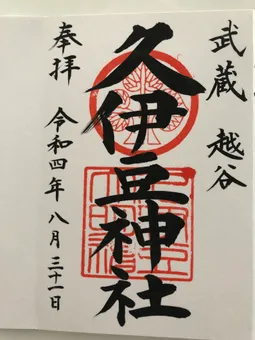 武蔵 越谷
久伊豆神社
奉拝 令和四年 八月 三十一日